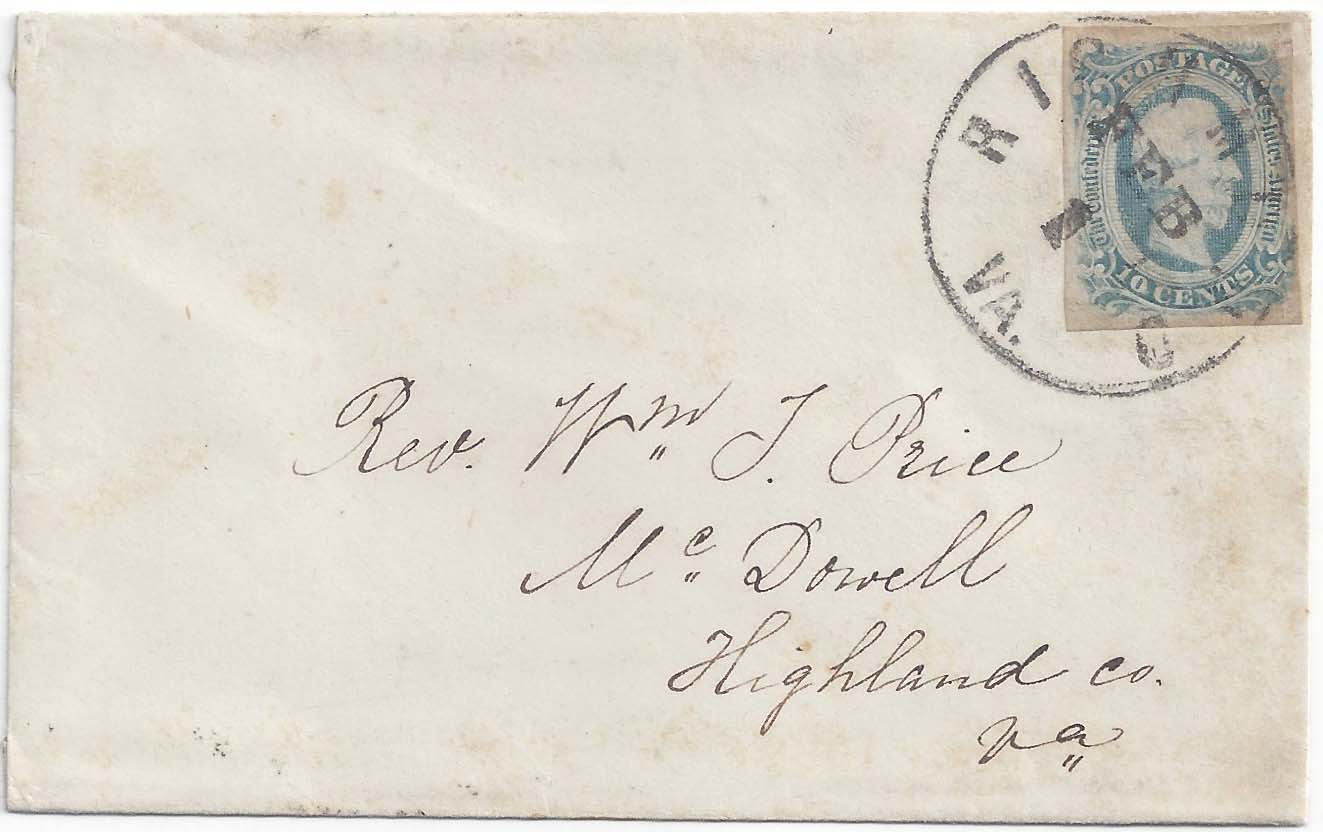 RICHMOND
FEB
VA.
POSTAGE
The Confederate States of America
10 CENTS
Rev. Wm J. Price
Mc Dowell
Highland co.
Va